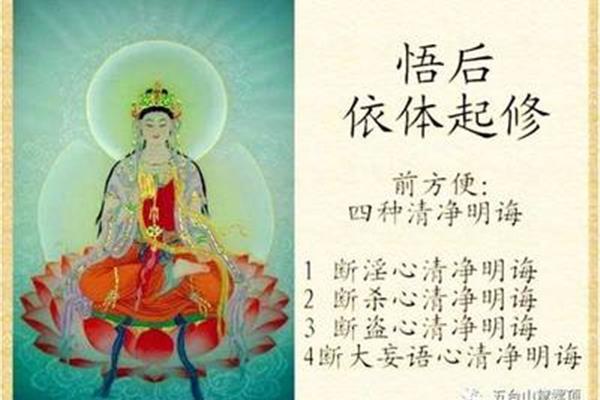 悟后
依体起修
前方便:
四种清净明诲
1 断淫心清净明诲
2 断杀心清净明诲
3 断盗心清净明诲
4断大妄语心清净明诲
五台山